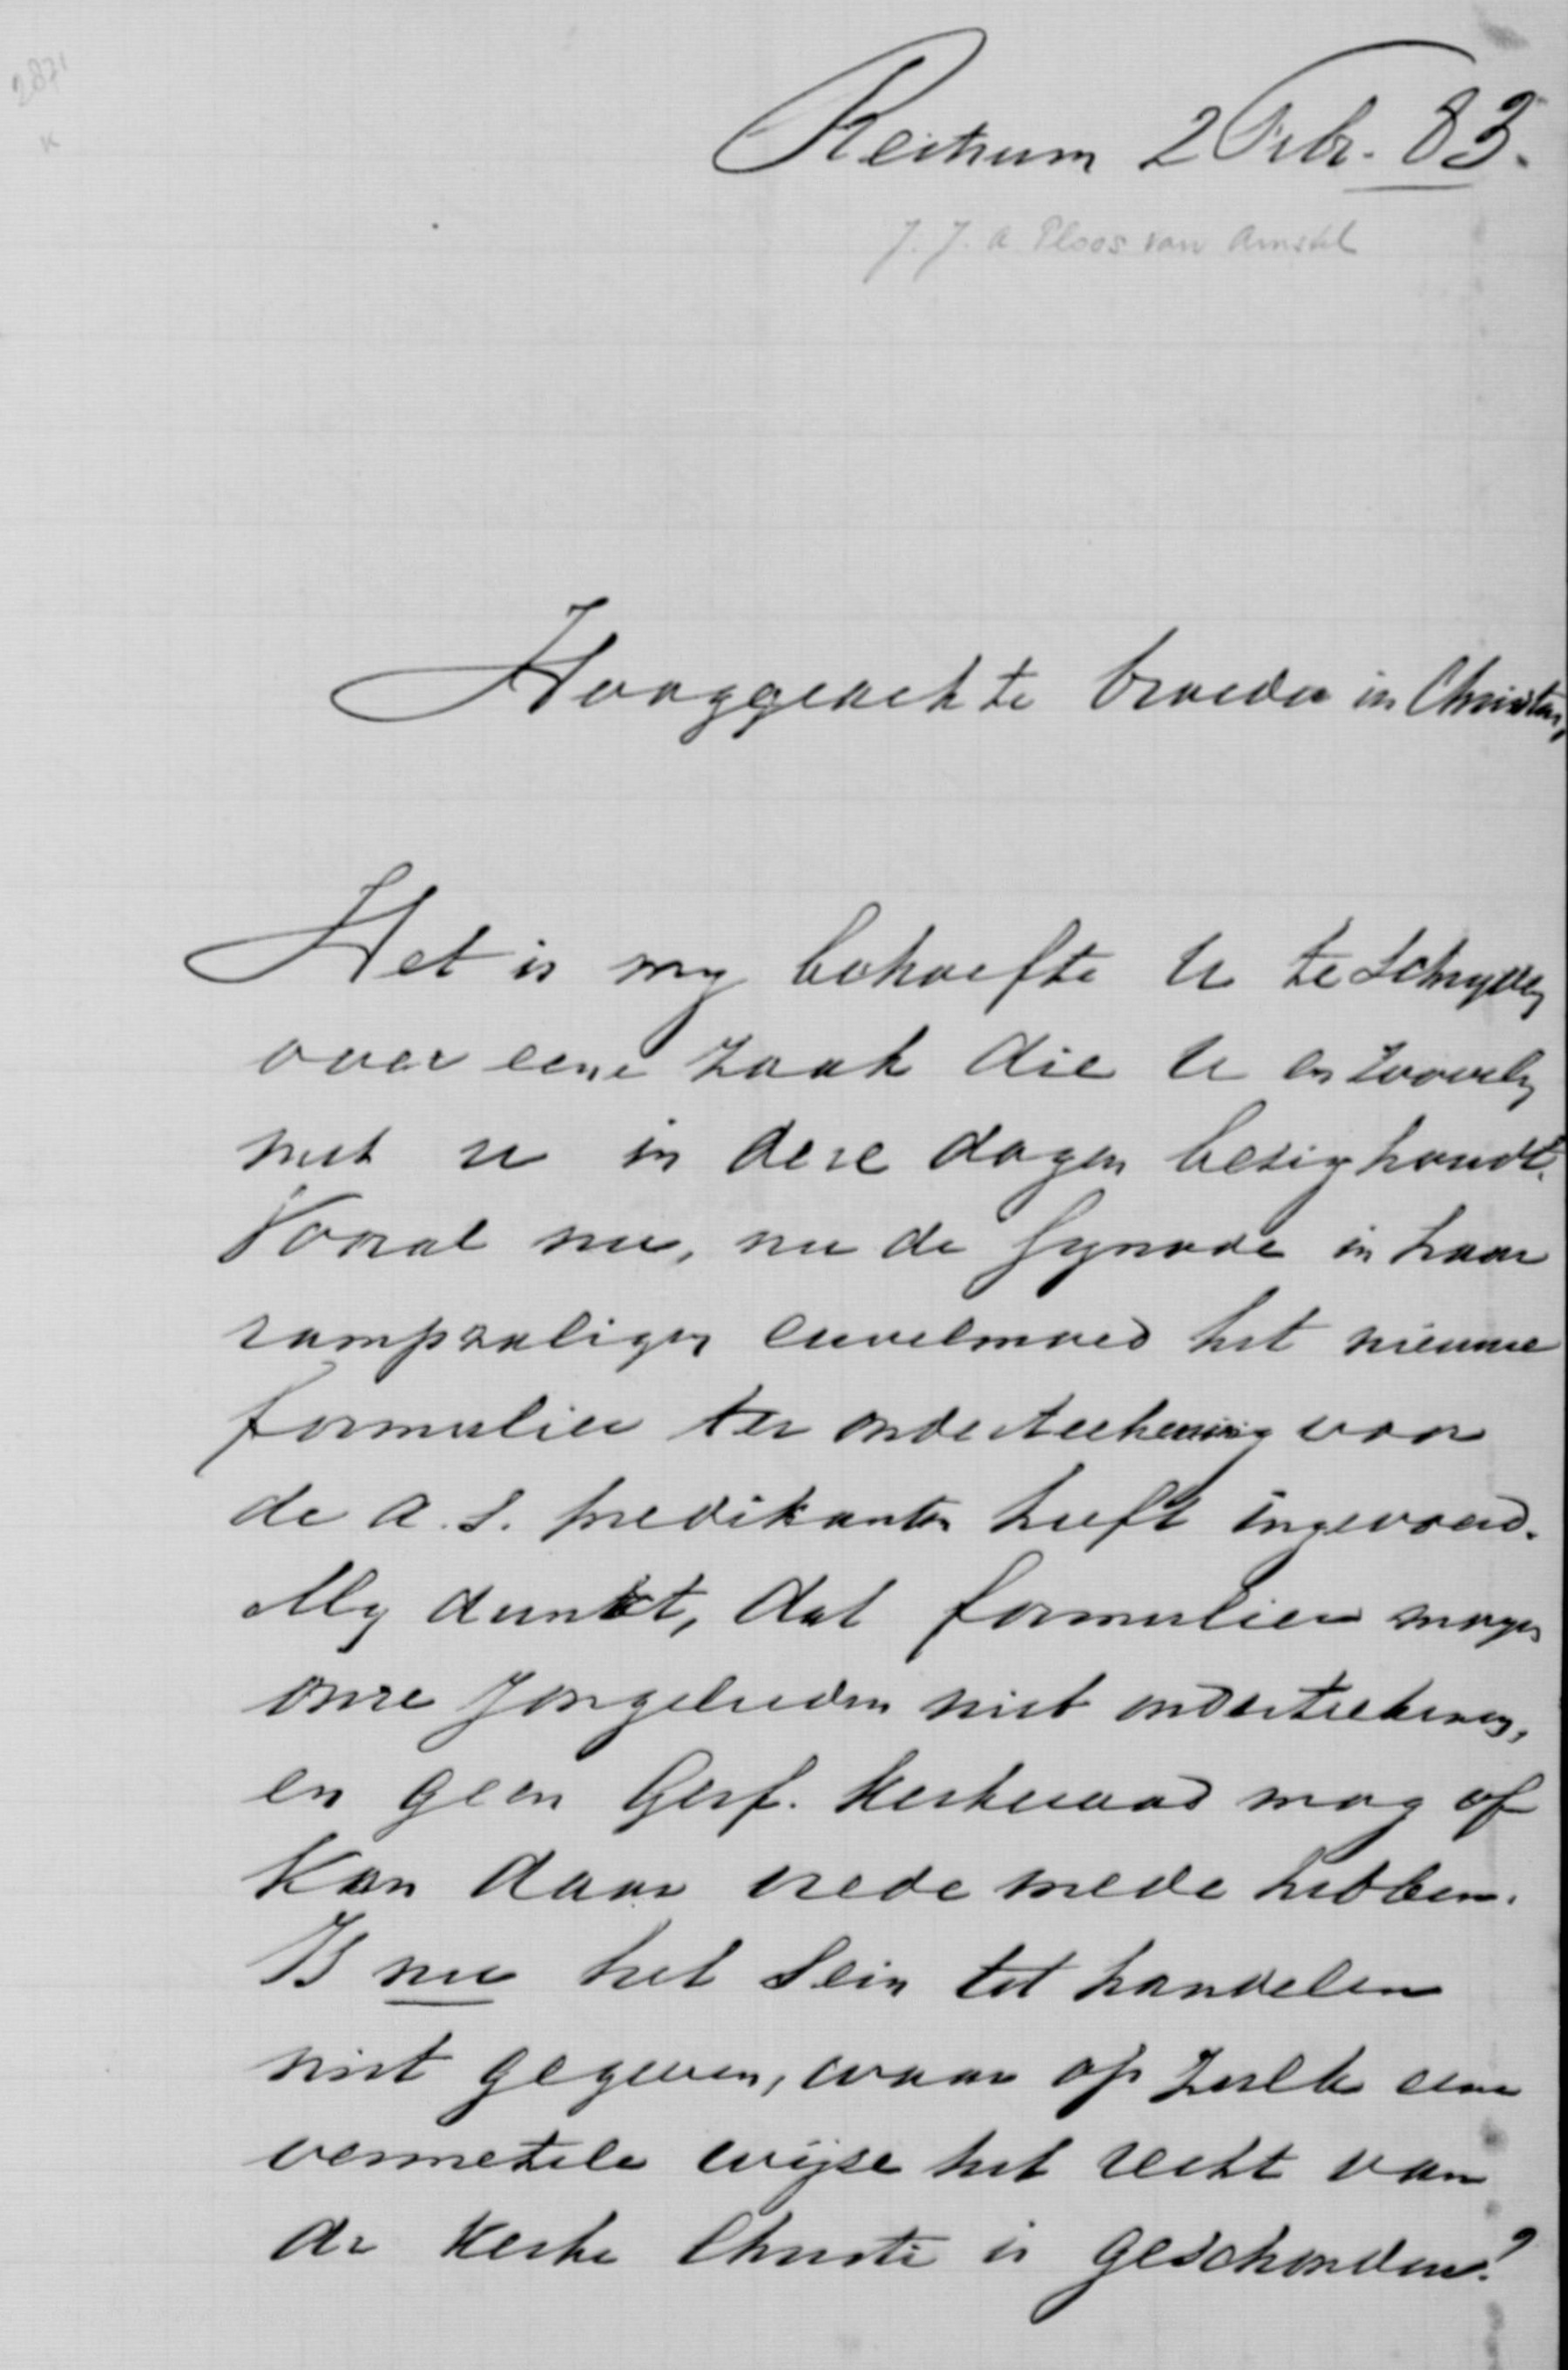 2871
K
Reitsum 2 Febr. 83.
J. J. A. Ploos van Amstel
Hooggeachte broeder in Christus,
Het is my behoefte U te schryven
over eene zaak die U en zoovelen
met U in deze dagen bezig houdt.
Vooral nu, nu de Synode in haar
rampzaligen euvelmoed het nieuwe
formulier ter onderteekening voor
de a. s. predikanten heeft ingevoerd.
My dunkt, dat formulier mogen
onze jongelieden niet onderteekenen,
en geen Geref. Kerkeraad mag of
kan daar vrede mede hebben.
Is nu het sein tot handelen
niet gegeven, waar op zulk eene
vermetele wijze het recht van
de Kerke Christi is geschonden?